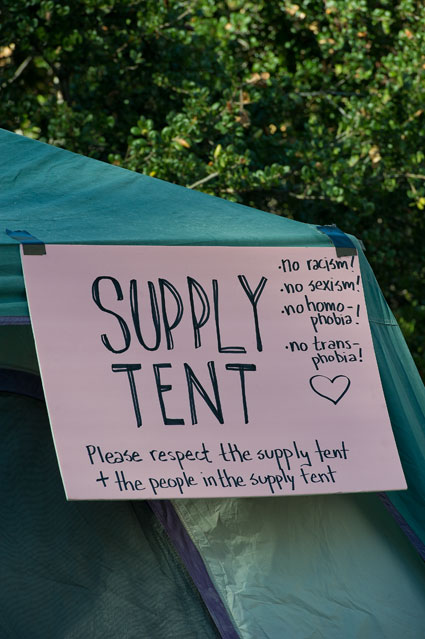 SUPPLY
TENT
·no racism!
·no sexism!
·no homo-
phobia!
·no trans-
phobia!
Please respect the supply tent
+ the people in the supply tent